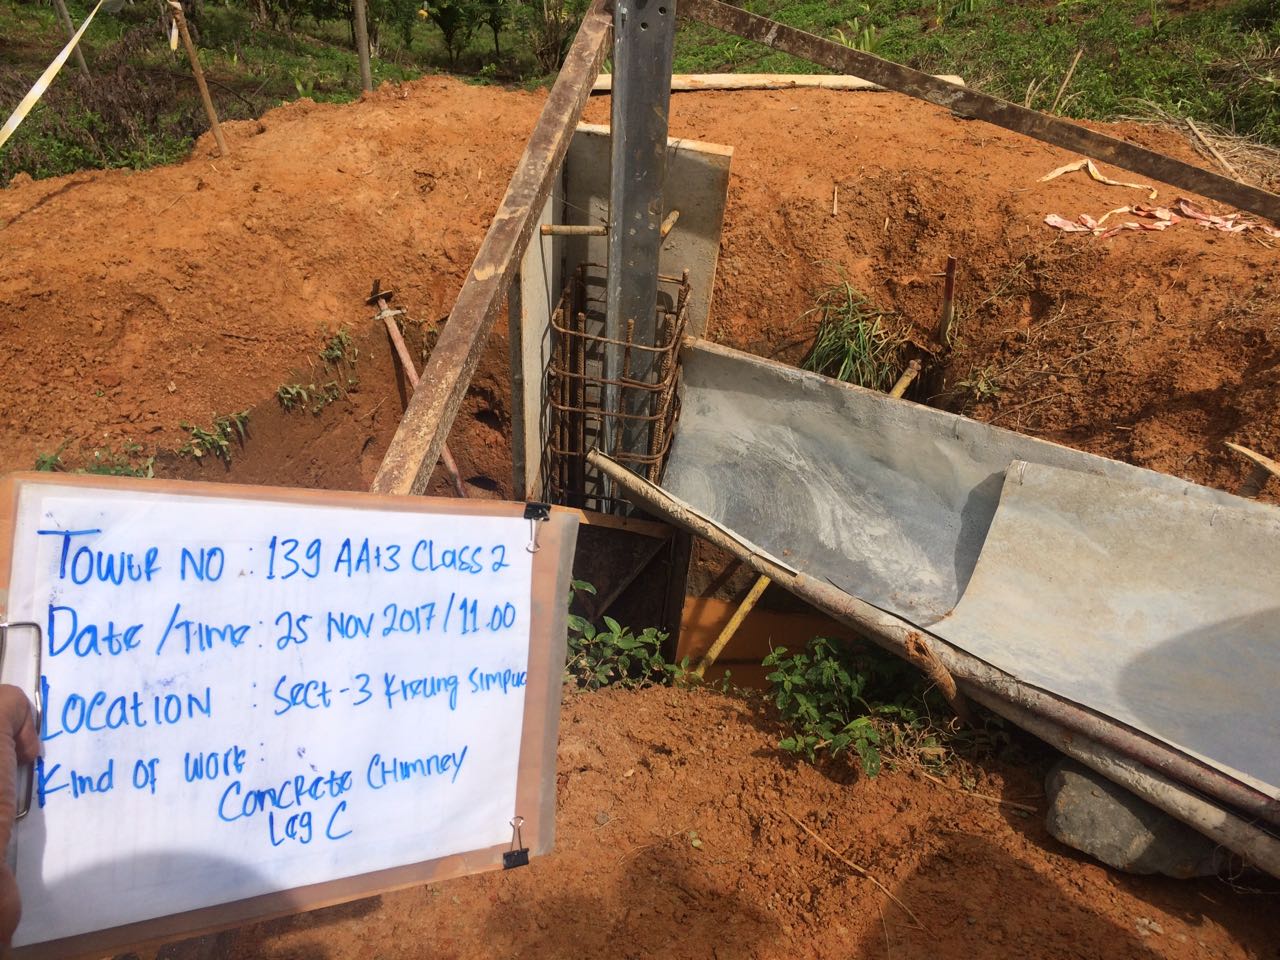 Tower No : 139 AA+3 Class 2
Date/Time : 25 Nov 2017/11.00
Location : Sect-3 Kreung Simpu
Kind Of Work :
Concrete Chimney
Leg C